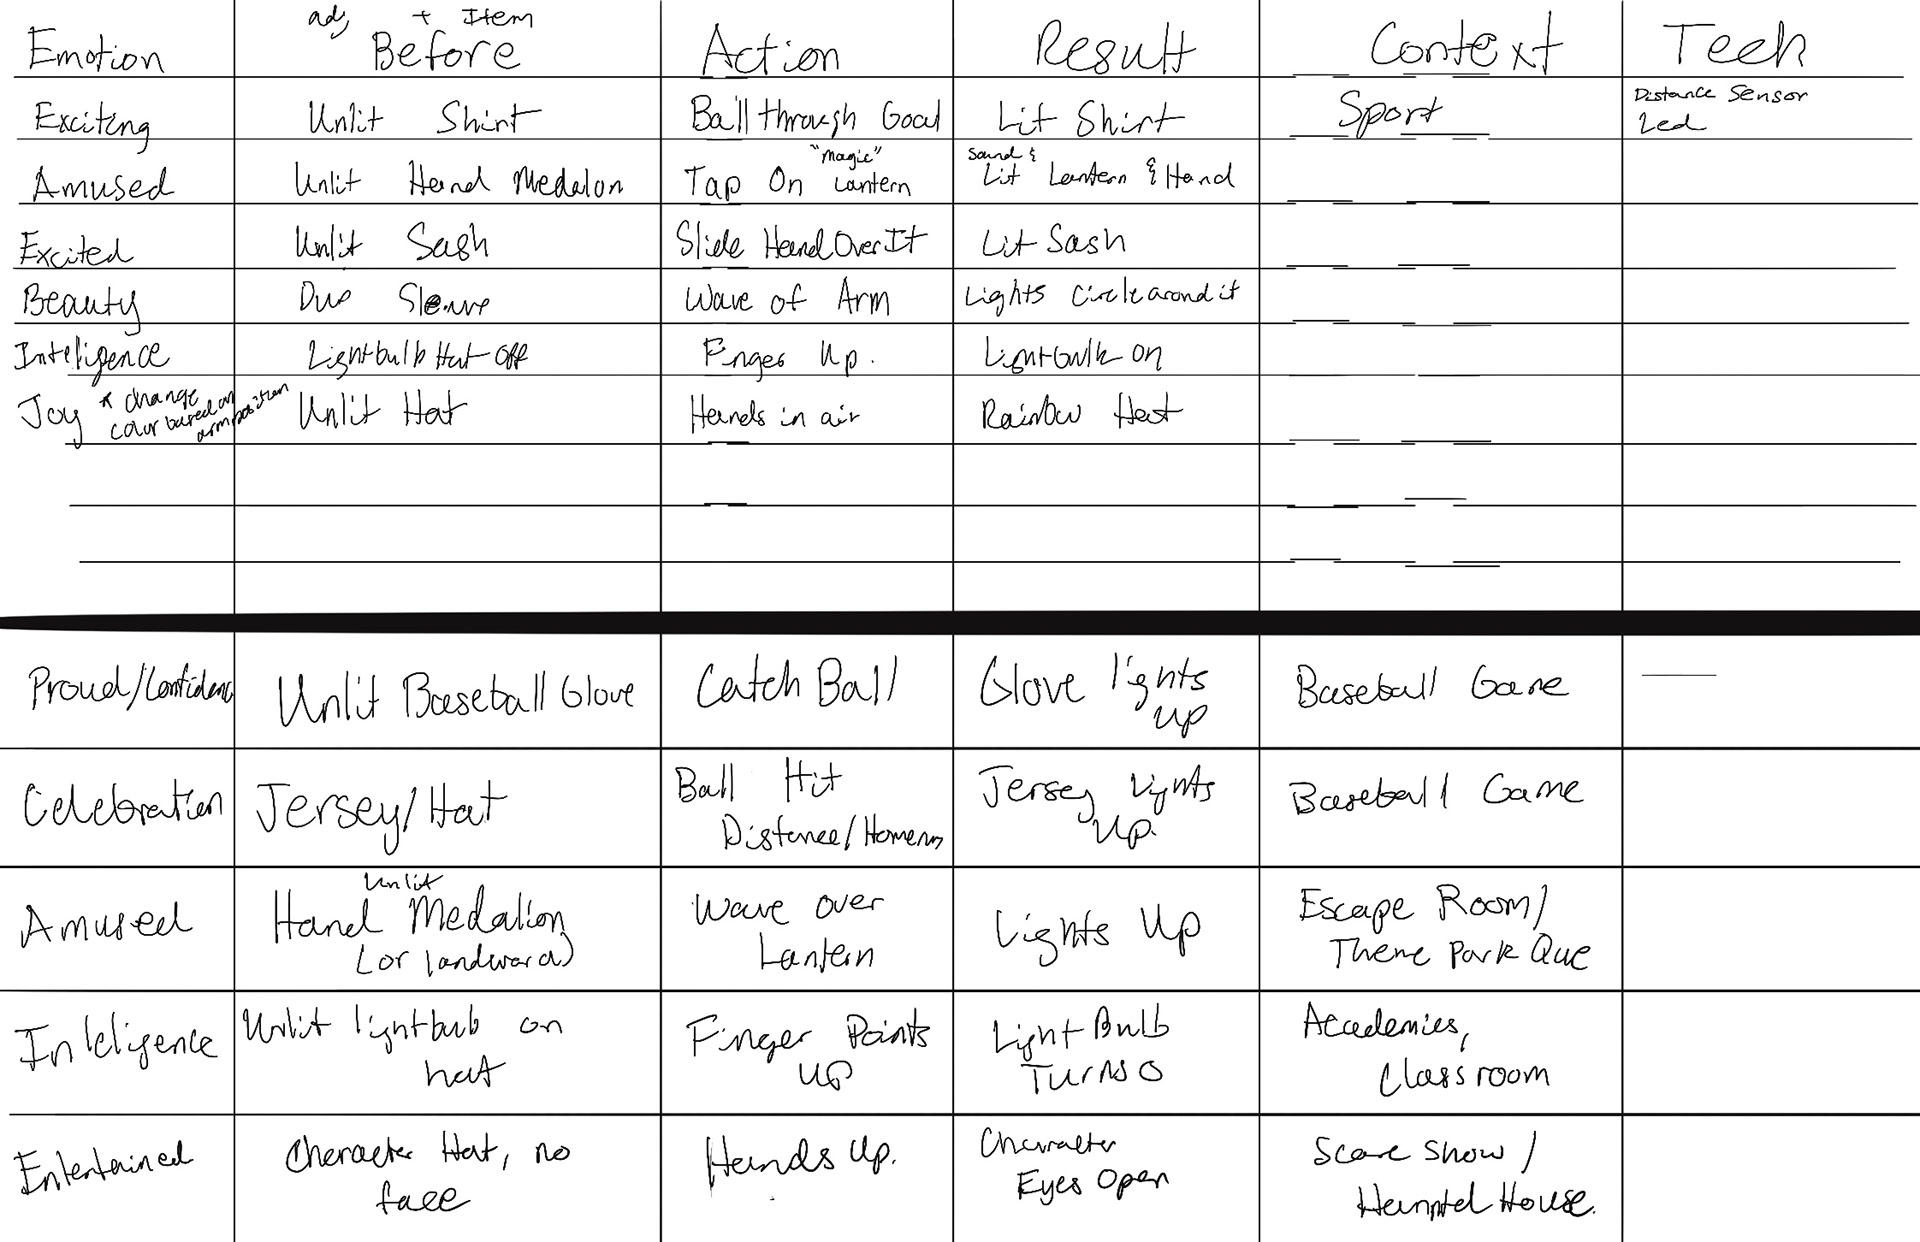 adj + Item
Emotion Before Action Result Context Tech
Exciting Unlit Shirt Ball through Goal Lit Shirt Sport Distance Sensor
Led
"magic" Sound &
Amused Unlit Hand Medalon Tap On Lantern Lit Lantern & Hand
Excited Unlit Sash Slide Hand Over It Lit Sash
Beauty Sleeve Wave of Arm Lights Circle arond it
Inteligence Lightbulb Hat Off Finger Up. Lightbulb on
Joy * change Unlit Hat Hands in air Rainbow Hat
color based on
arm position
Proud/Confidenc Unlit Baseball Glove Catch Ball Glove lights Baseball Game
up
Celebration Jersey/Hat Ball Hit Jersey Lights Baseball Game
Distance/Homerun Up.
Unlit
Amused Hand Medalion Wave over Lights Up Escape Room/
(or landward) Lantern Theme Park Que
Inteligence Unlit lightbulb on Finger Points Light Bulb Academics,
hat up Turns O Classroom
Entertained Character Hat, no Hands Up. Character Scare Show /
face Eyes Open Haunted House.